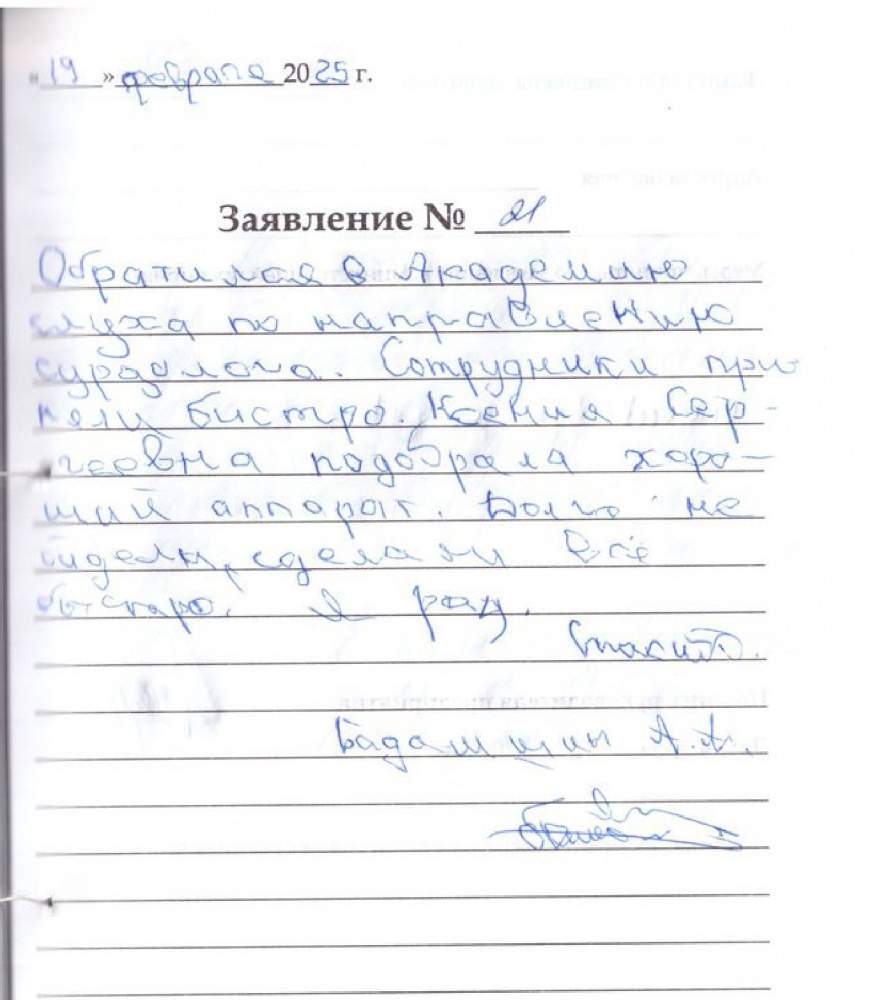 «19» февраля 2025 г.
Заявление № 21
Обратился в Академию
слуха по направлению
сурдолога. Сотрудники при-
няли быстро. Ксения Сер-
геевна подобрала хоро-
ший аппарат. Долго не
сидели, сделали все
быстро. Я рад.
Спасибо.
А.А.